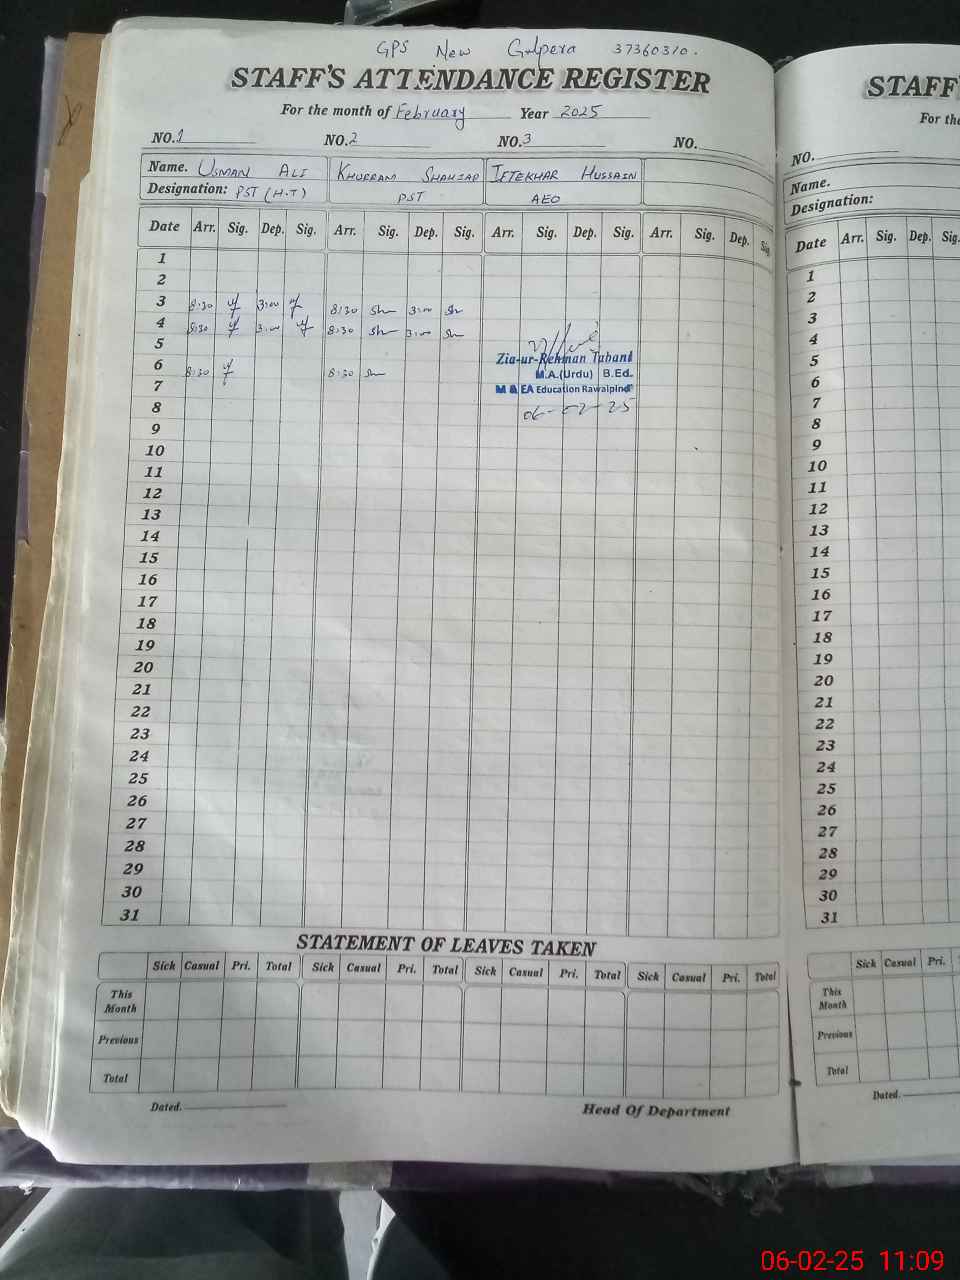 GPS New Gulpera 37360310.
STAFF'S ATTENDANCE REGISTER
For the month of February Year 2025
NO.1 NO.2 NO.3 NO.
Name. USMAN ALI KHURRAM SHAHZAD IFTEKHAR HUSSAIN
Designation: PST (H.T) PST AEO
Date Arr. Sig. Dep. Sig. Arr. Sig. Dep. Sig. Arr. Sig. Dep. Sig. Arr. Sig. Dep. Sig.
1
2
3 8:30 3:00 8:30 Sh 3:00 Sh
4 8:30 3:00 8:30 Sh 3:00 Sh
5
6 8:30 8:30 Sh
7
Zia-ur-Rehman Tabani
M.A.(Urdu) B.Ed.
M & EA Education Rawalpindi
06-02-25
8
9
10
11
12
13
14
15
16
17
18
19
20
21
22
23
24
25
26
27
28
29
30
31
STATEMENT OF LEAVES TAKEN
Sick Casual Pri. Total Sick Casual Pri. Total Sick Casual Pri. Total Sick Casual Pri. Total
This Month
Previous
Total
Dated. Head Of Department
STAFF'
For the
NO.
Name.
Designation:
Date Arr. Sig. Dep. Sig.
1
2
3
4
5
6
7
8
9
10
11
12
13
14
15
16
17
18
19
20
21
22
23
24
25
26
27
28
29
30
31
Sick Casual Pri.
This Month
Previous
Total
Dated.
06-02-25 11:09